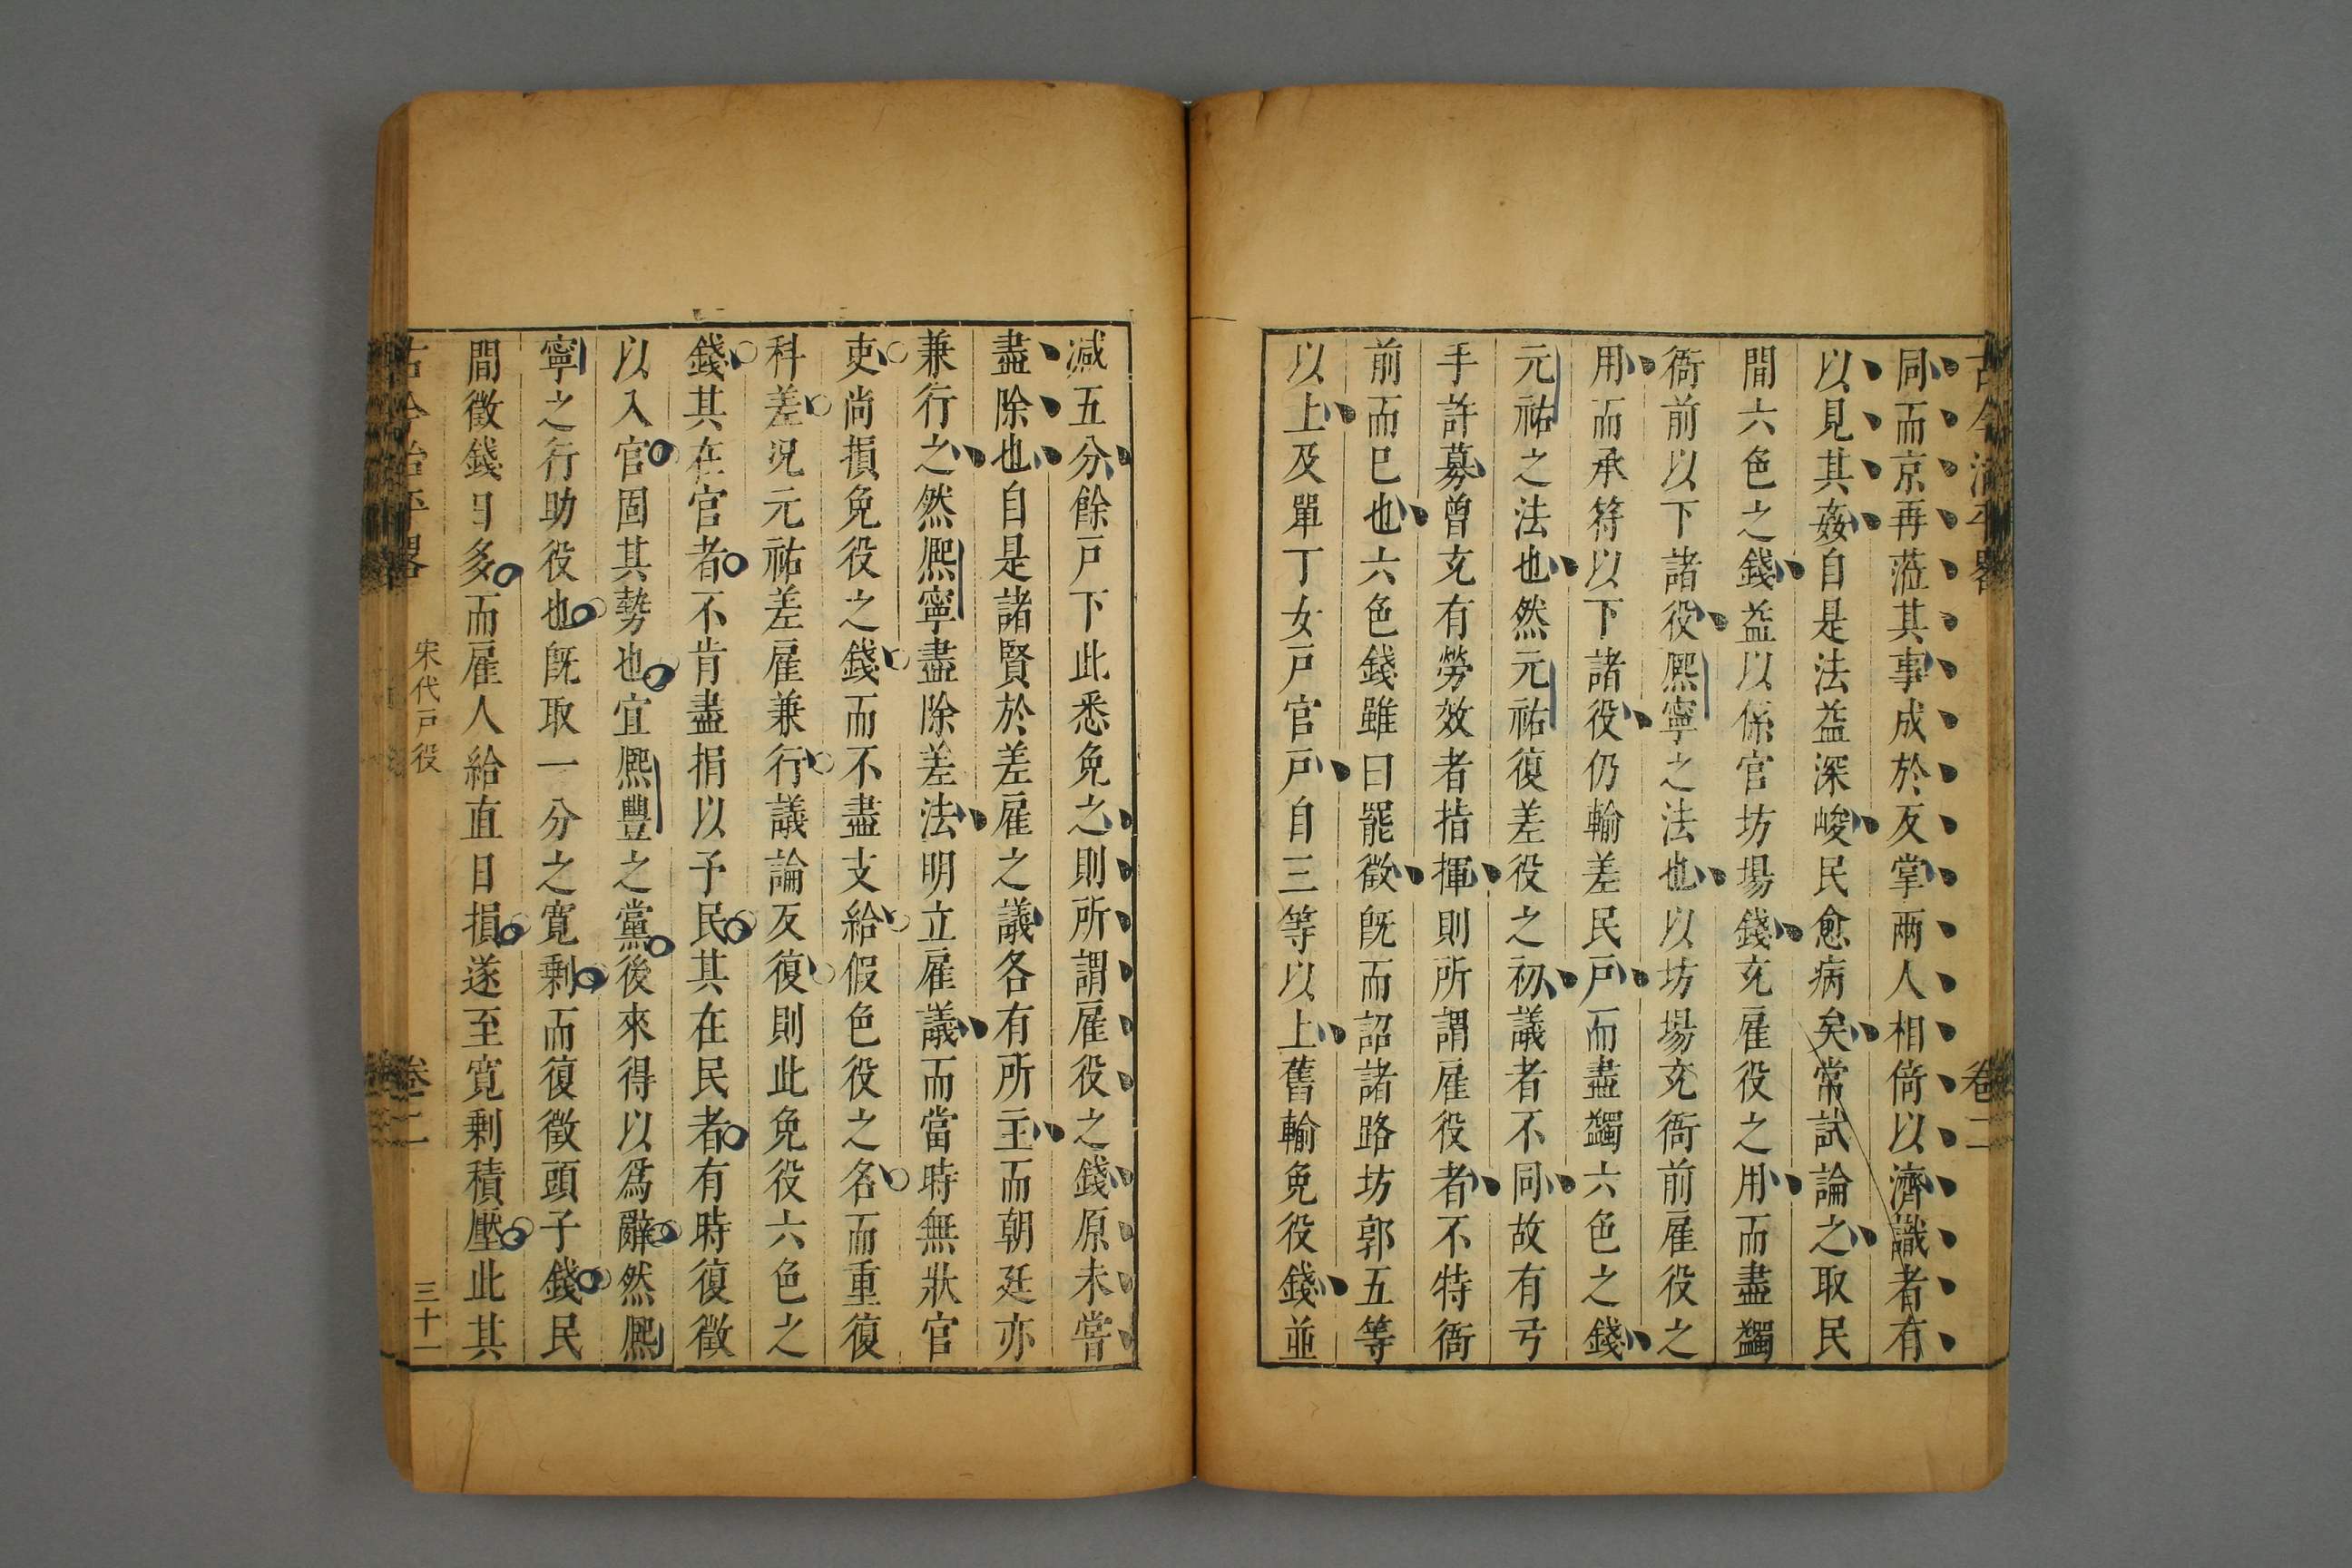 古今治平畧
卷二
同而京再蒞其事成於反掌兩人相倚以濟識者有
以見其姦自是法益深峻民愈病矣常試論之取民
間六色之錢益以係官坊場錢充雇役之用而盡蠲
衙前以下諸役熈寧之法也以坊場充衙前雇役之
用而承符以下諸役仍輸差民戸而盡蠲六色之錢
元祐之法也然元祐復差役之初議者不同故有弓
手許募曾充有勞效者指揮則所謂雇役者不特衙
前而巳也六色錢雖曰罷徵旣而詔諸路坊郭五等
以上及單丁女戸官戸自三等以上舊輸免役錢並
减五分餘戸下此悉免之則所謂雇役之錢原未嘗
盡除也自是諸賢於差雇之議各有所主而朝廷亦
兼行之然熈寧盡除差法明立雇議而當時無狀官
吏尚損免役之錢而不盡支給假色役之名而重復
科差况元祐差雇兼行議論反復則此免役六色之
錢其在官者不肯盡捐以予民其在民者有時復徵
以入官固其勢也宜熈豐之黨後來得以爲辭然熈
寧之行助役也旣取一分之寛剩而復徵頭子錢民
間徵錢日多而雇人給直日損遂至寛剩積壓此其
古今治平畧
宋代戸役
卷二
三十一